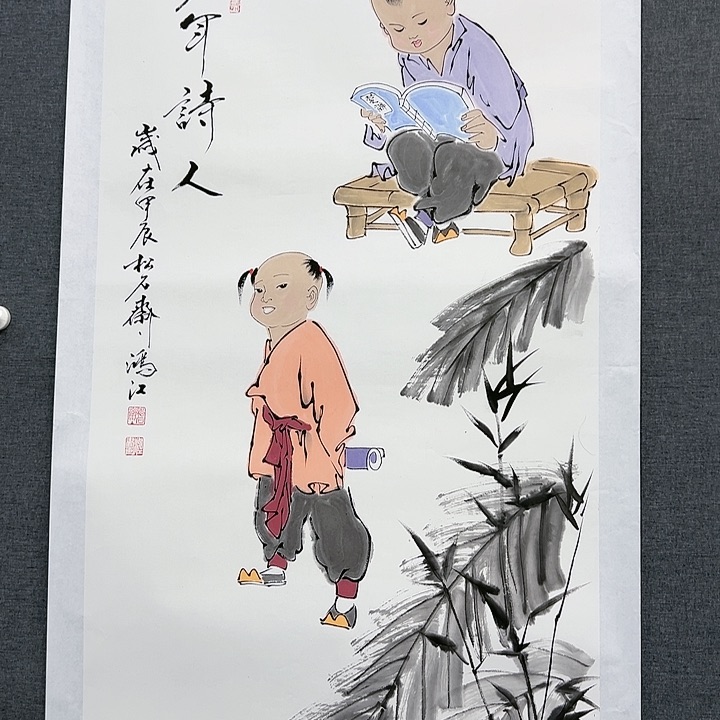 年詩人
歲在甲辰松石齋鴻江